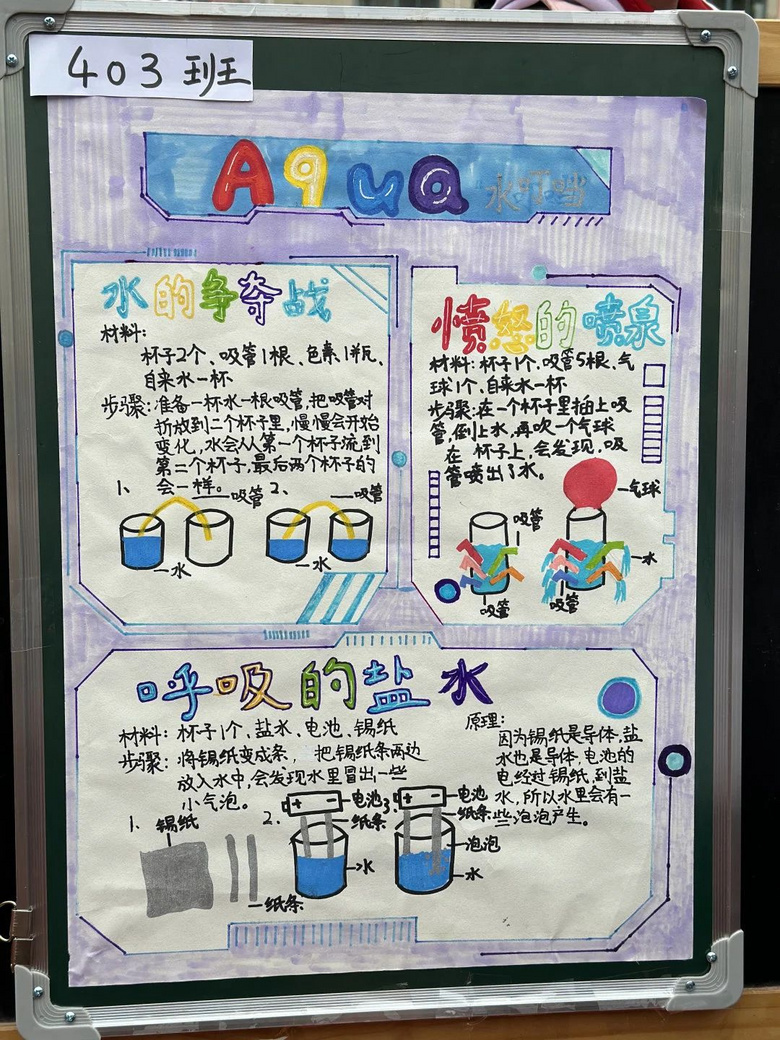 403班
Aqua 水叮当
水的争夺战
材料:
杯子2个、吸管1根、色素1瓶、
自来水一杯
步骤:准备一杯水一根吸管,把吸管对
折放到二个杯子里,慢慢会开始
变化,水会从第一个杯子流到
第二个杯子,最后两个杯子的
会一样。
1、
吸管
水
2、
吸管
愤怒的喷泉
材料:杯子1个、吸管5根、气
球1个、自来水一杯
步骤:在一个杯子里插上吸
管,倒上水,再吹一个气球
在 杯子上,会发现,吸
管喷出了水。
吸管
吸管
气球
水
吸管
呼吸的盐水
材料:杯子1个、盐水、电池、锡纸
步骤:将锡纸变成条, 把锡纸条两边
放入水中,会发现水里冒出一些
小气泡。
原理:
因为锡纸是导体,盐
水也是导体,电池的
电,经过锡纸,到盐
水,所以水里会有一
些泡泡产生。
1、
锡纸
纸条
2、
电池
纸条
水
3、
电池
纸条
泡泡
水